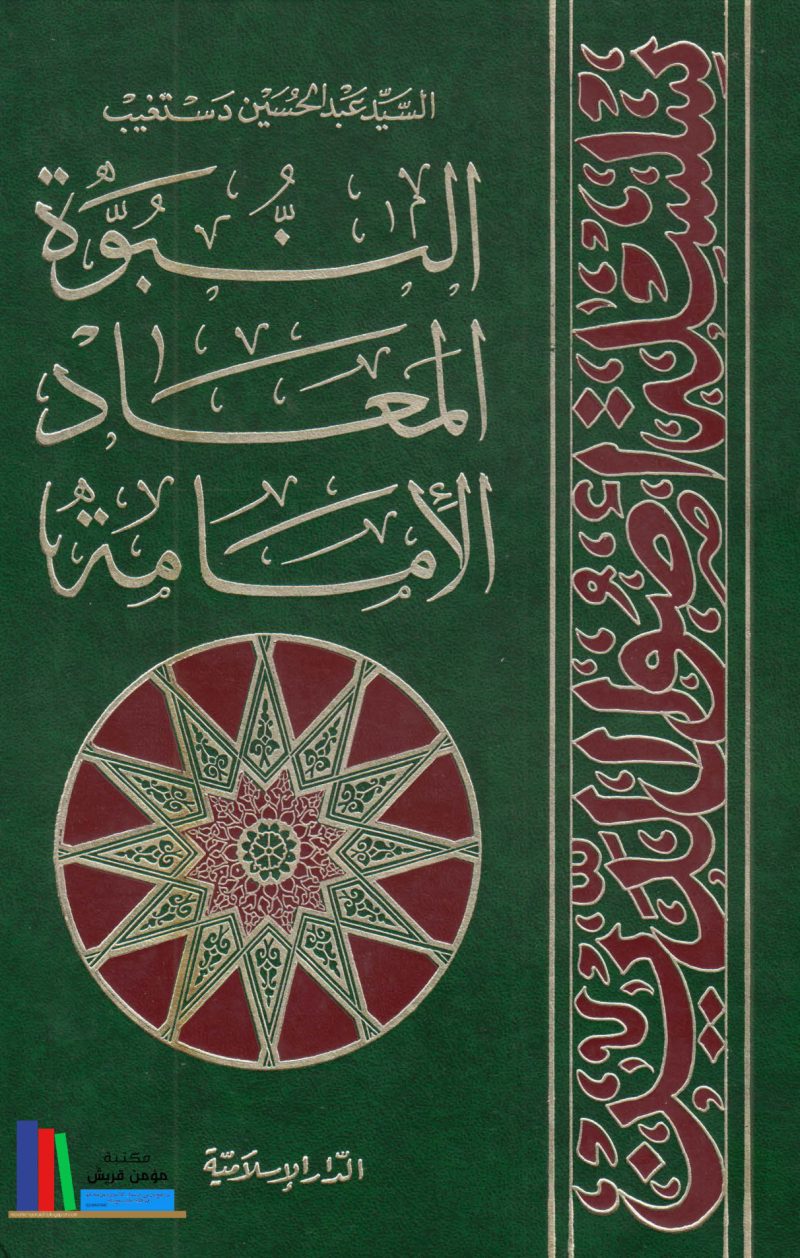 السَّيِّد عَبْد الحُسَيْن دَسْتغيب
النُّبُوَّة
المَعَاد
الإمَامَة
سِلْسِلَة أُصُول الدِّين
الدّار الإسلاميَّة
مكتبة
مؤمن قريش